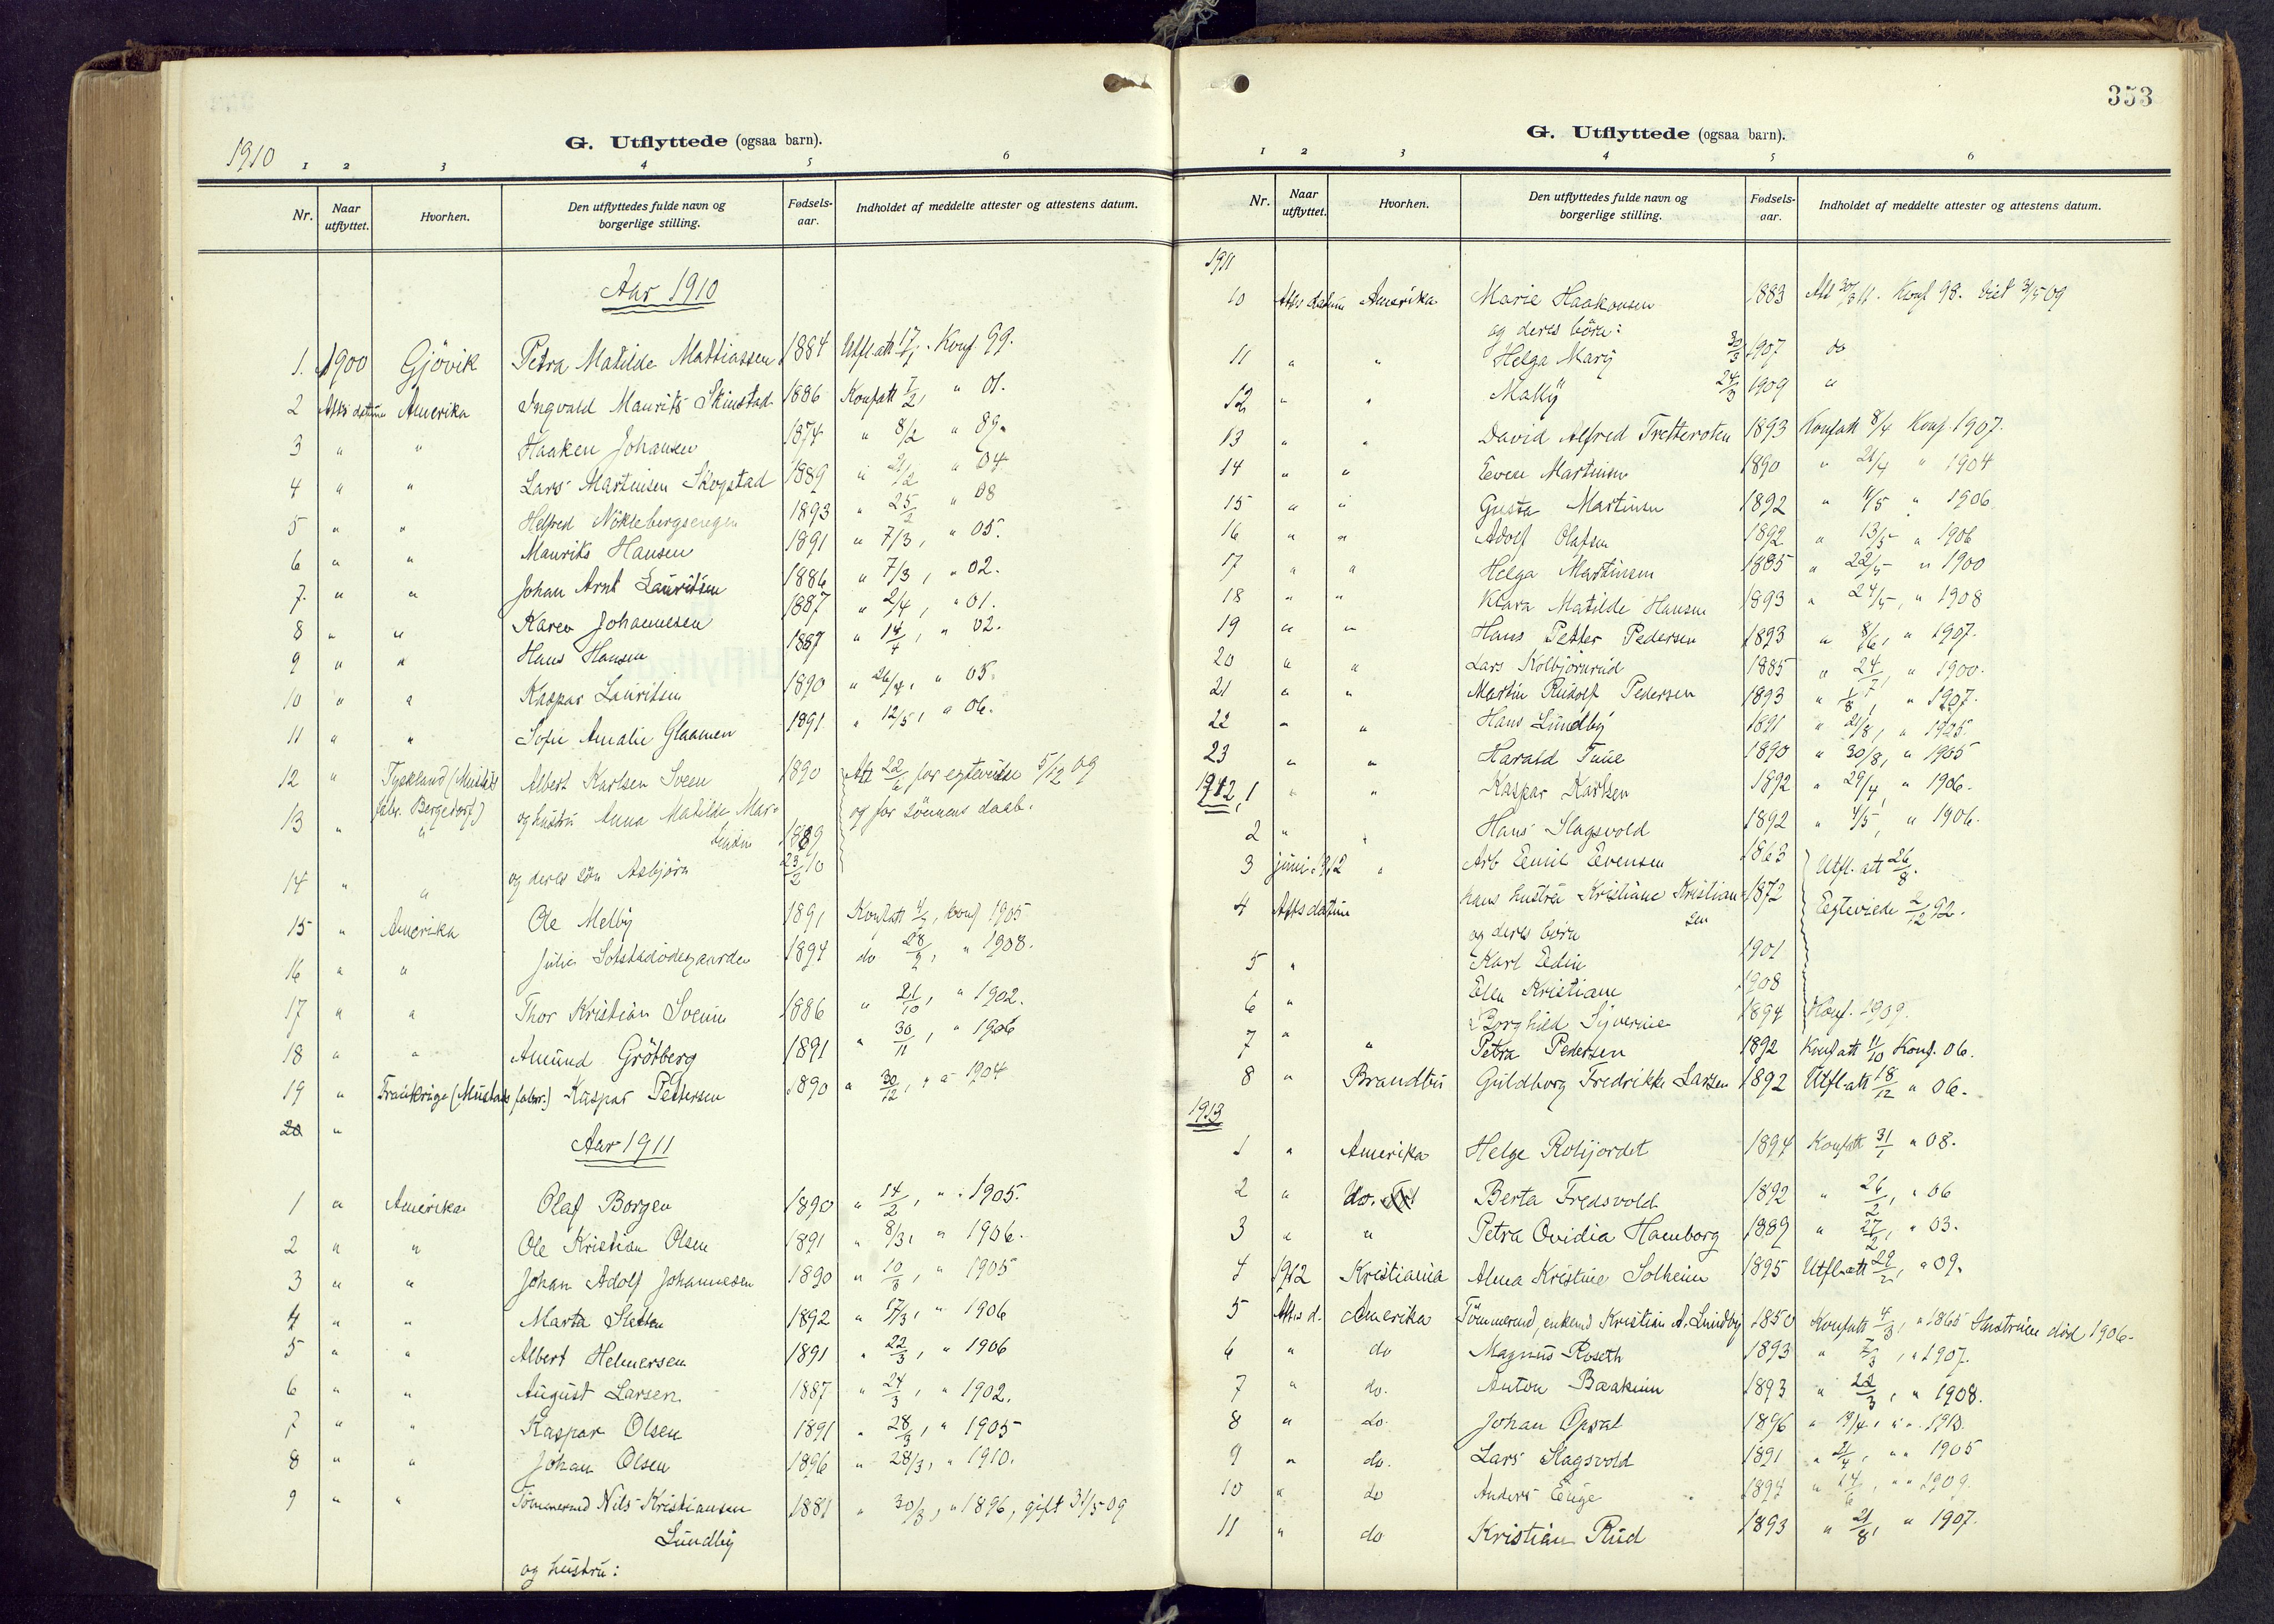 1910
G. Utflyttede (ogsaa barn).
1 2 3 4 5 6
Nr. Naar utflyttet. Hvorhen. Den utflyttedes fulde navn og borgerlige stilling. Fødsels-aar. Indholdet af meddelte attester og attestens datum.
Aar 1910
1. 1900 Gjövik Petra Matilde Mattiassen 1884 Utfl.att 17/1. Konf 99.
2 Atts datum Amerika Ingvald Maurits Skinstad 1886 Konfatt 7/2, " 01.
3 " " Haaken Johansen 1874 " 8/2 " 89.
4 " " Lars Martinsen Skogstad 1889 " 21/2 " 04
5 " " Helfred Nöklebergsengen 1893 " 25/2 " 08
6 " " Mauriks Hansen 1891 " 7/3, " 05.
7. " " Johan Arnt Lauritsen 1886 " 7/3, " 02.
8 " " Karen Johannesen 1887 " 2/4, " 01.
9 " " Hans Hansen 1887 " 14/4, " 02.
10 " " Kaspar Lauritsen 1890 " 26/4, " 05.
11 " " Sofie Amalie Glaamen 1891 " 12/5, " 06.
12 " Tyskland (Mustads Albert Karlsen Sveen 1890 Att 22/6 for egtevielse 5/12 09
13 " fabr. Bergedorf) " og hustru Anna Matilde Mar- 1889 og for sönnens daab.
tinsen
14 " " og deres sön Asbjörn 23/2 10
15 " Amerika Ole Melby 1891 Konfatt, konf 1905
16 " " Julie Sotstadödegaarden 1894 do 28/7, " 1908.
17 " " Thor Kristian Sveum 1886 " 21/10, " 1902.
18 " " Amund Grötberg 1891 " 30/11, " 1906
19 " Frankrige (Mustads fabr.) Kaspar Pettersen 1890 " 30/12, " " 1904
20 "
Aar 1911
1 " Amerika Olaf Borgen 1890 " 14/2, " 1905.
2 " " Ole Kristian Olsen 1891 " 8/3, " 1906.
3 " " Johan Adolf Johannesen 1890 " 10/3, " 1905
4 " " Marta Sletten 1892 " 17/3, " 1906
5 " " Albert Helmersen 1891 " 22/3, " 1906
6 " " August Larsen 1887 " 24/3, " 1902.
7 " " Kaspar Olsen 1891 " 28/3, " 1905
8 " " Johan Olsen 1896 " 28/3, " 1910.
9 " " Tömmermd Nils Kristiansen 1881 " 30/3, " 1896, gift 31/5 09
Lundby
og hustru:
353
G. Utflyttede (ogsaa barn).
1 2 3 4 5 6
Nr. Naar utflyttet. Hvorhen. Den utflyttedes fulde navn og borgerlige stilling. Fødsels-aar. Indholdet af meddelte attester og attestens datum.
1911
10 Atts datum Amerika Marie Haakonsen 1883 Att 30/3 11. Konf 98. Viet 31/5 09
og deres börn:
11 " " Helga Mary 30/3 1907 do
12 " " Mally 24/3 1909 "
13 " " David Alfred Tretteroten 1893 Konfatt 8/4 Konf. 1907.
14 " " Even Martinsen 1890 " 21/4 " 1904
15 " " Gusta Martinsen 1892 " 11/5 " 1906
16 " " Adolf Olafsen 1892 " 13/5 " 1906
17 " " Helga Martinsen 1885 " 22/5 " 1900
18 " " Klara Matilde Hansen 1893 " 24/5, " 1908
19 " " Hans Petter Pedersen 1893 " 8/6, " 1907.
20 " " Lars Kolbjörnrud 1885 " 24/7, " 1900.
21 " " Martin Rudolf Pedersen 1893 " 1/8, " 1907.
22 " " Hans Lundby 1891 " 21/8, " 1925.
23 " " Harald Tune 1890 " 30/8, " 1905
1912, 1 " " Kaspar Karlsen 1892 " 29/4, " 1906.
2 " " Hans Slagsvold 1892 " 4/5, " 1906.
3 juni 1912 " Arb Emil Evensen 1863 Utfl. att 26/8.
4 Atts datum hans hustru Kristiane Kristian- 1872 Egteviede 2/12 92.
sen
og deres börn
5 " Karl Edin 1901
6 " Ella Kristiane 1908
Borghild Syverine 1894 Konf. 1909.
7 " " Petra Pedersen 1892 Konfatt 11/10 Konf. 06.
8 " Brandbu Guldborg Fredrikke Larsen 1892 Utfl.att 18/12 " 06.
1913
1 " Amerika Helge Rolijordet 1894 Konfatt 31/1 " 08.
2 " do. Berta Fredsvold 1892 " 26/2, " 06
3 " " Petra Ovidia Hamborg 1889 " 27/2, " 03.
4 1912 Kristiania Alma Kristine Solheim 1895 Utfl.att 29/2, " 09.
5 Atts d. Amerika Tömmermd, enkemd Kristian A. Lundby 1850 Konfatt 4/3, " 1865 Hustruen död 1906.
6 " do Magnus Roseth 1893 " 7/3, " 1907.
7 " do. Anton Baakinn 1893 " 22/3, " 1908.
8 " do. Johan Opsal 1896 " 19/4, " " 1910.
9 " do. Lars Slagsvold 1891 " 21/4, " " 1905
10 " do Anders Enge 1894 " 14/6, " " 1909.
11 " do Kristian Rud 1893 " 21/8, " 1907.